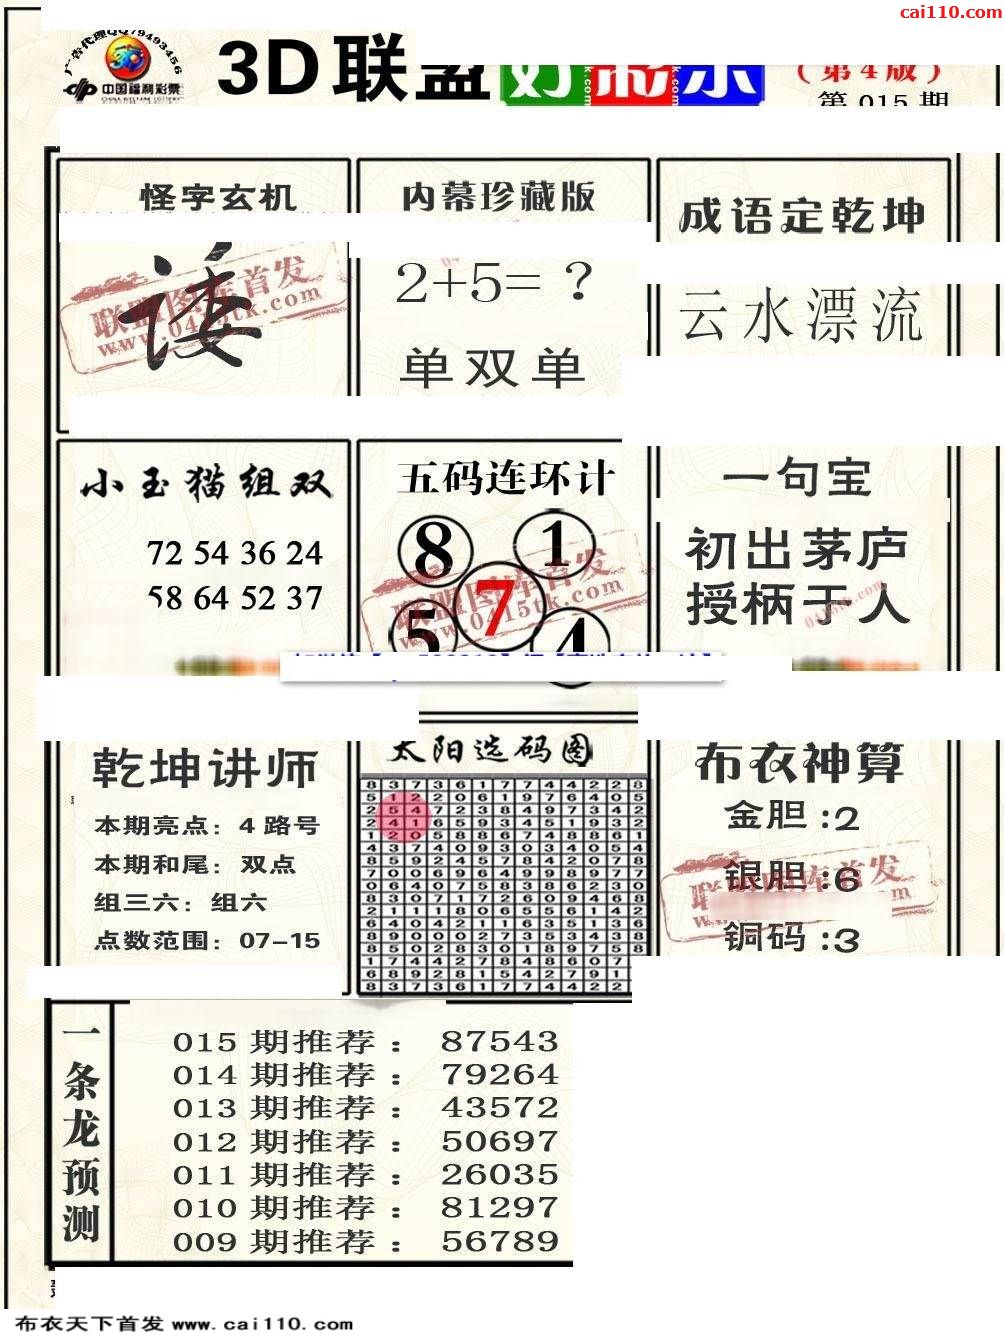 cai110.com
广告代理QQ79493456
中国福利彩票
CHINA WELFARE LOTTERY
3D联盟
好彩水
(第4版)
第 015 期
怪字玄机
联盟图库首发
www.0415tk.com
内幕珍藏版
2+5=？
单双单
成语定乾坤
云水漂流
小玉猫组双
72 54 36 24
58 64 52 37
五码连环计
8 1
7
5 4
联盟图库首发
www.0415tk.com
一句宝
初出茅庐
授柄于人
乾坤讲师
本期亮点：4 路号
本期和尾：双点
组三六：组六
点数范围：07-15
太阳选码图
8 3 7 3 6 1 7 7 4 4 2 2 8
5 1 2 2 0 6 1 9 7 6 4 0 5
2 5 4 7 2 3 8 4 9 7 3 4 2
2 4 1 6 5 9 3 4 5 1 9 3 2
1 2 0 5 8 8 6 7 4 8 8 6 1
4 5 7 4 0 9 3 0 3 4 0 5 4
8 5 9 2 4 5 7 8 4 2 0 7 8
7 0 0 6 9 6 4 9 9 8 9 7 7
0 6 4 0 7 5 8 3 8 6 2 3 0
8 3 0 7 1 7 2 6 0 9 4 6 8
2 1 1 1 8 0 6 5 5 6 1 4 2
6 9 0 4 2 2 1 1 6 3 5 3 6
8 9 0 0 0 2 7 3 5 3 4 3 8
8 5 0 2 8 3 0 1 8 9 7 5 8
1 7 4 4 2 7 8 4 8 6 0 7
6 8 9 2 8 1 5 4 2 7 9 1
8 3 7 3 6 1 7 7 4 4 2 2
布衣神算
金胆:2
银胆:6
铜码:3
联盟图库首发
一条龙预测
015 期推荐： 87543
014 期推荐： 79264
013 期推荐： 43572
012 期推荐： 50697
011 期推荐： 26035
010 期推荐： 81297
009 期推荐： 56789
布衣天下首发 www.cai110.com